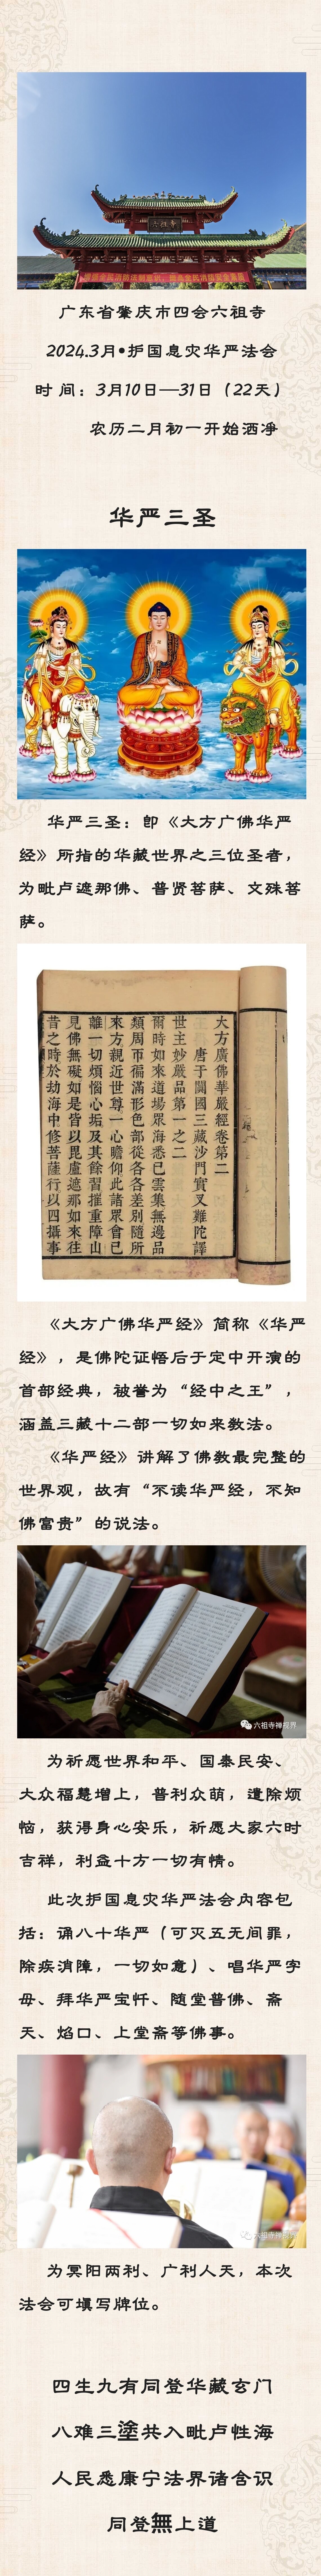 六祖寺
广东省肇庆市四会六祖寺
2024.3月•护国息灾华严法会
时 间：3月10日—31日（22天）
农历二月初一开始洒净
华严三圣
华严三圣：即《大方广佛华严
经》所指的华藏世界之三位圣者，
为毗卢遮那佛、普贤菩萨、文殊菩
萨。
大方廣佛華嚴經卷第二
唐于闐國三藏沙門實叉難陀譯
世主妙嚴品第一之二
爾時如來道場眾海悉已雲集無邊品
類周帀徧滿形色部從各各差別隨所
來方親近世尊一心瞻仰此諸眾會已
離一切煩惱心垢及其餘習摧重障山
見佛無礙如是皆以毘盧遮那如來往
昔之時於劫海中修菩薩行以四攝事
《大方广佛华严经》简称《华严
经》，是佛陀证悟后于定中开演的
首部经典，被誉为“经中之王”，
涵盖三藏十二部一切如来教法。
《华严经》讲解了佛教最完整的
世界观，故有“不读华严经，不知
佛富贵”的说法。
六祖寺禅视界
为祈愿世界和平、国泰民安、
大众福慧增上，普利众萌，遣除烦
恼，获得身心安乐，祈愿大家六时
吉祥，利益十方一切有情。
此次护国息灾华严法会内容包
括：诵八十华严（可灭五无间罪，
除疾消障，一切如意）、唱华严字
母、拜华严宝忏、随堂普佛、斋
天、焰口、上堂斋等佛事。
六祖寺禅视界
为冥阳两利、广利人天，本次
法会可填写牌位。
四生九有同登华藏玄门
八难三塗共入毗卢性海
人民悉康宁法界诸含识
同登無上道